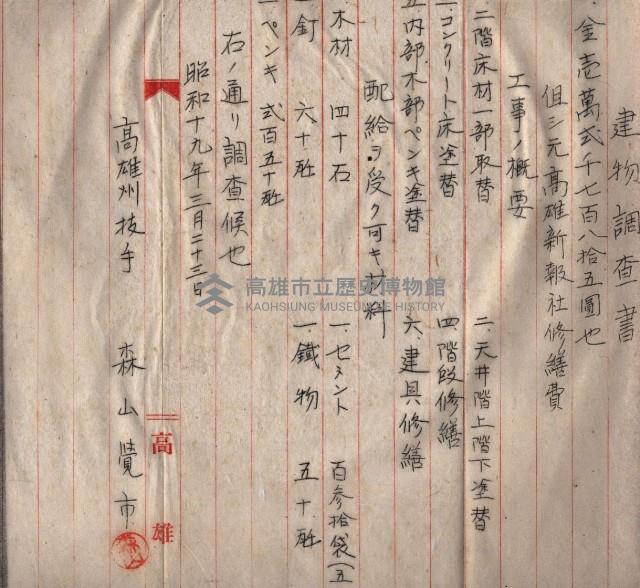 建物調査書
金壱萬弐千七百八拾五圓也
但シ元高雄新報社修繕費
工事ノ概要
二階床材一部取替 二、天井階上階下塗替
コンクリート床塗替 四、階段修繕
五内部木部ペンキ塗替 六、建具修繕
配給ヲ受ク可キ材料
木材 四十石 一、セメント 百参拾袋(五
釘 六十瓩 一、鐵物 五十瓩
ペンキ 弐百五十瓩
右ノ通リ調査候也
昭和十九年三月二十三日
高雄州技手 森山覺市
高雄
高雄市立歷史博物館
KAOHSIUNG MUSEUM OF HISTORY